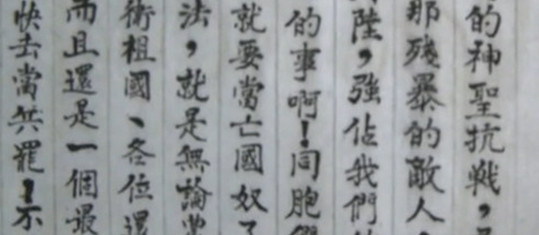 的神聖抗戰，
那殘暴的敵人
陸，強佔我們
的事啊！同胞們
就要當亡國奴了
法，就是無論當
術祖國、各位還
而且還是一個最
快去當兵罷！不